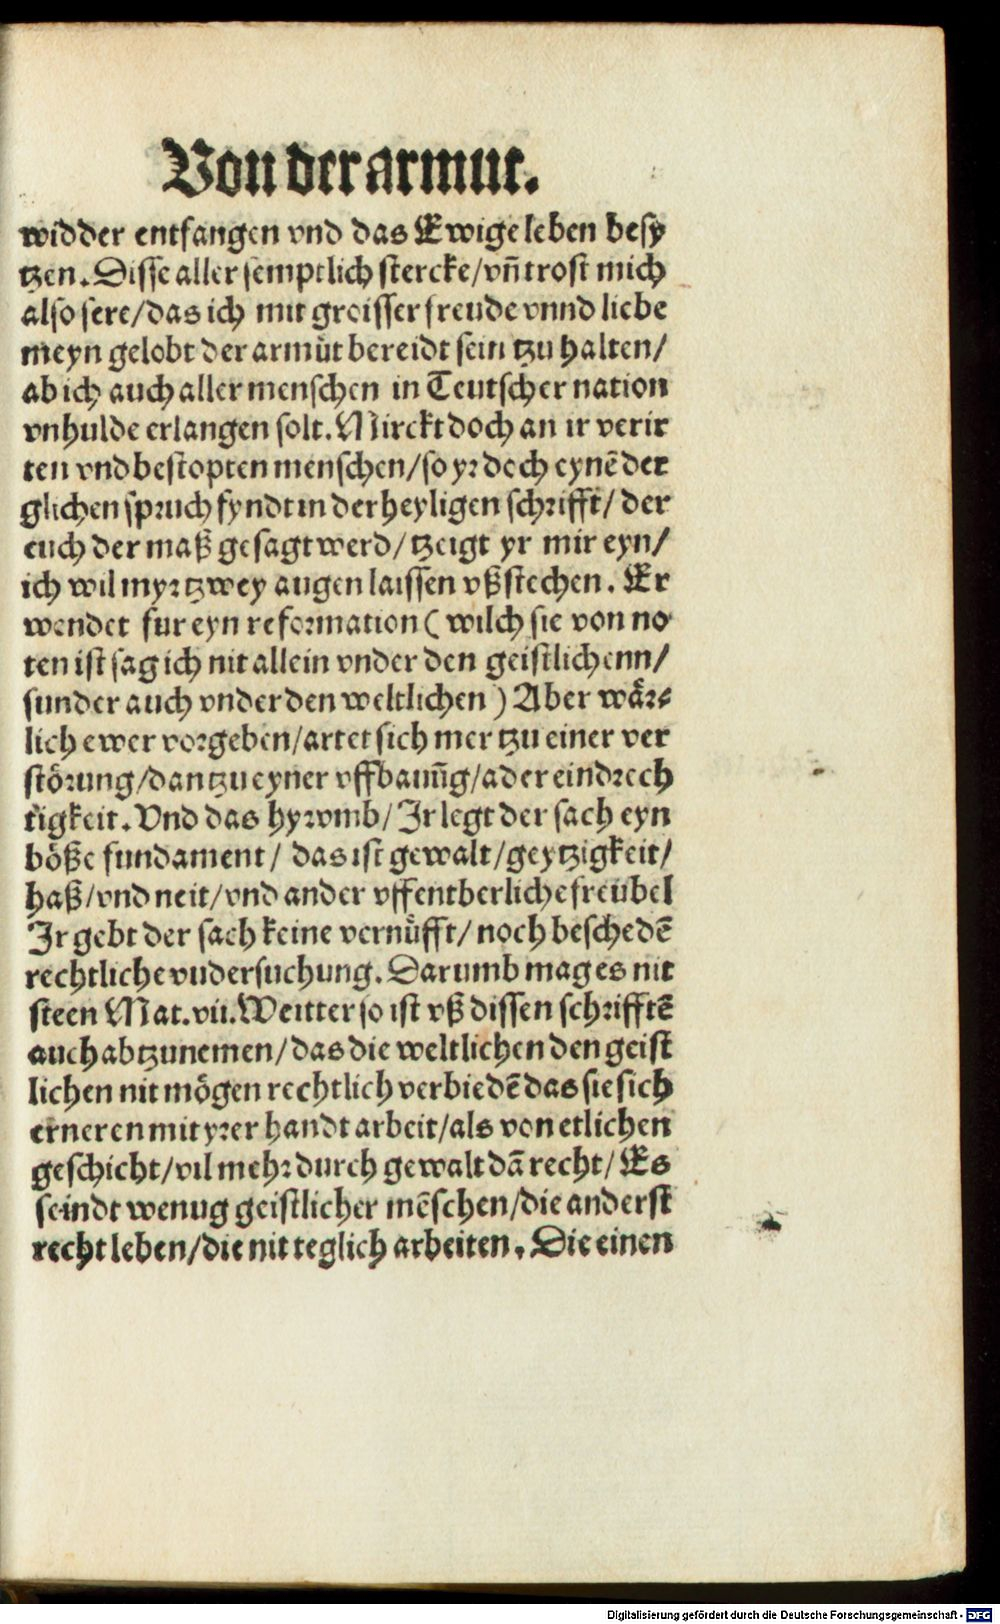 Von der armut.
widder entfangen vnd das Ewige leben besy
tzen. Disse aller semptlich stercke/ vñ trost mich
also sere/ das ich mit groisser freude vnnd liebe
meyn gelobt der armůt bereidt sein tzu halten/
ab ich auch aller menschen in Teutscher nation
vnhulde erlangen solt. Mirckt doch an ir verir
ten vnd bestopten menschen/ so yr doch eynẽ der
glichen spruch fyndt in der heyligen schrifft/ der
euch der maß gesagt werd/ tzeigt yr mir eyn/
ich wil myr tzwey augen laissen vßstechen. Er
wendet fur eyn reformation ( wilch sie von no
ten ist sag ich nit allein vnder den geistlichenn/
sunder auch vnder den weltlichen ) Aber wår⸗
lich ewer vorgeben/ artet sich mer tzu einer ver
störung/ dan tzu eyner vffbauũg/ ader eindrech
tigkeit. Vnd das hyrvmb/ Ir legt der sach eyn
böße fundament/ das ist gewalt/ geytzigkeit/
haß/ vnd neit/ vnd ander vffentberliche freübel
Ir gebt der sach keine vernüfft/ noch beschedẽ
rechtliche vudersuchung. Darumb mag es nit
steen Mat. vii. Weitter so ist vß dissen schrifftẽ
auch abtzunemen/ das die weltlichen den geist
lichen nit mögen rechtlich verbiedẽ das sie sich
erneren mit yrer handt arbeit/ als von etlichen
geschicht/ vil mehr durch gewalt dã recht/ Es
seindt wenug geistlicher mẽschen/ die anderst
recht leben/ die nit teglich arbeiten. Die einen
Digitalisierung gefördert durch die Deutsche Forschungsgemeinschaft - DFG